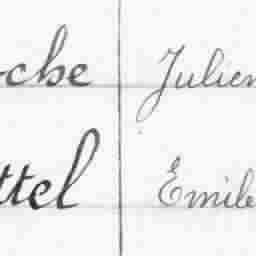 oche Julien
ttel Emile